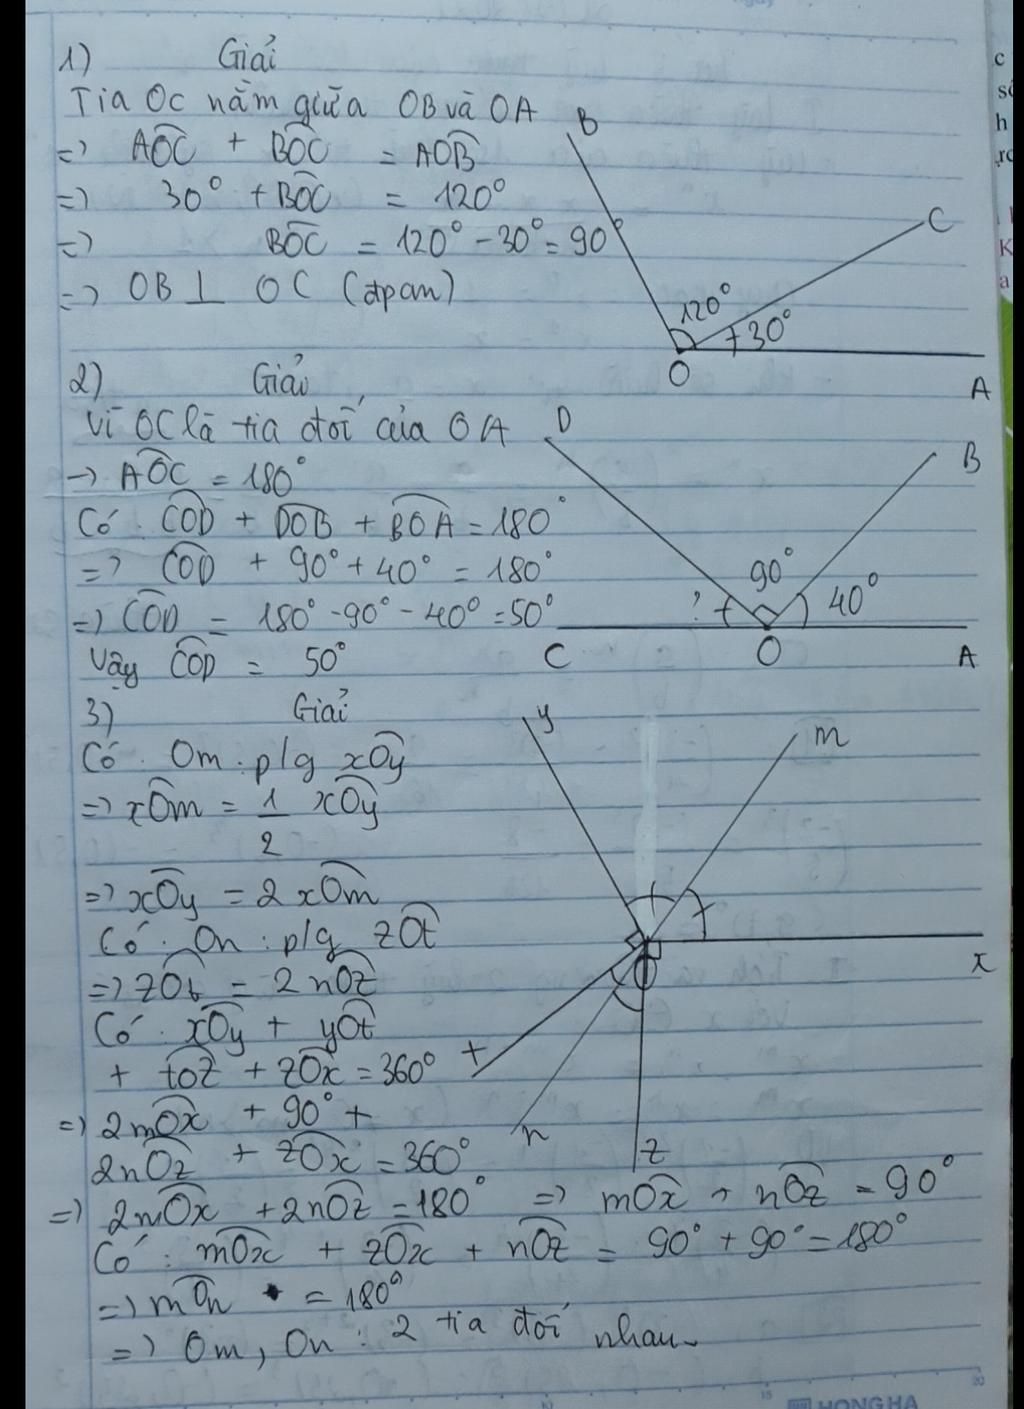 1) Giải
Tia OC nằm giữa OB và OA
=> AÔC + BÔC = AÔB
=> 30° + BÔC = 120°
=> BÔC = 120° - 30° = 90°
=> OB ⊥ OC (đpcm)
B
C
120°
30°
O
A
2) Giải
Vì OC là tia đối của OA
-> AÔC = 180°
Có: CÔD + DÔB + BÔA = 180°
=> CÔD + 90° + 40° = 180°
=> CÔD = 180° - 90° - 40° = 50°
Vậy CÔD = 50°
D
B
90°
?
40°
C
O
A
3) Giải
Có: Om: p/g xÔy
=> xÔm = 1/2 xÔy
=> xÔy = 2 xÔm
Có: On: p/g zÔt
=> zÔt = 2 nÔz
Có: xÔy + yÔt
+ tÔz + zÔx = 360°
=> 2mÔx + 90° +
2nÔz + zÔx = 360°
y
m
x
O
t
n
z
=> 2mÔx + 2nÔz = 180° => mÔx + nÔz = 90°
Có: mÔx + zÔx + nÔz = 90° + 90° = 180°
=> mÔn = 180°
=> Om, On: 2 tia đối nhau
HONG HA
10
15
20
c
h
K
a